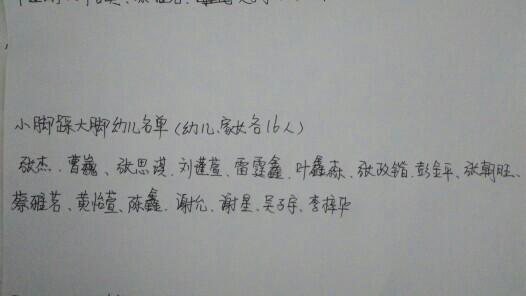 小脚踩大脚幼儿名单（幼儿、家长各16人）
张杰、曹巍、张思漠、刘谨萱、雷霆鑫、叶鑫焱、张政锴、彭金平、张朝旺、
蔡雅茗、黄怡萱、陈鑫、谢允、谢星、吴子宇、李梓华